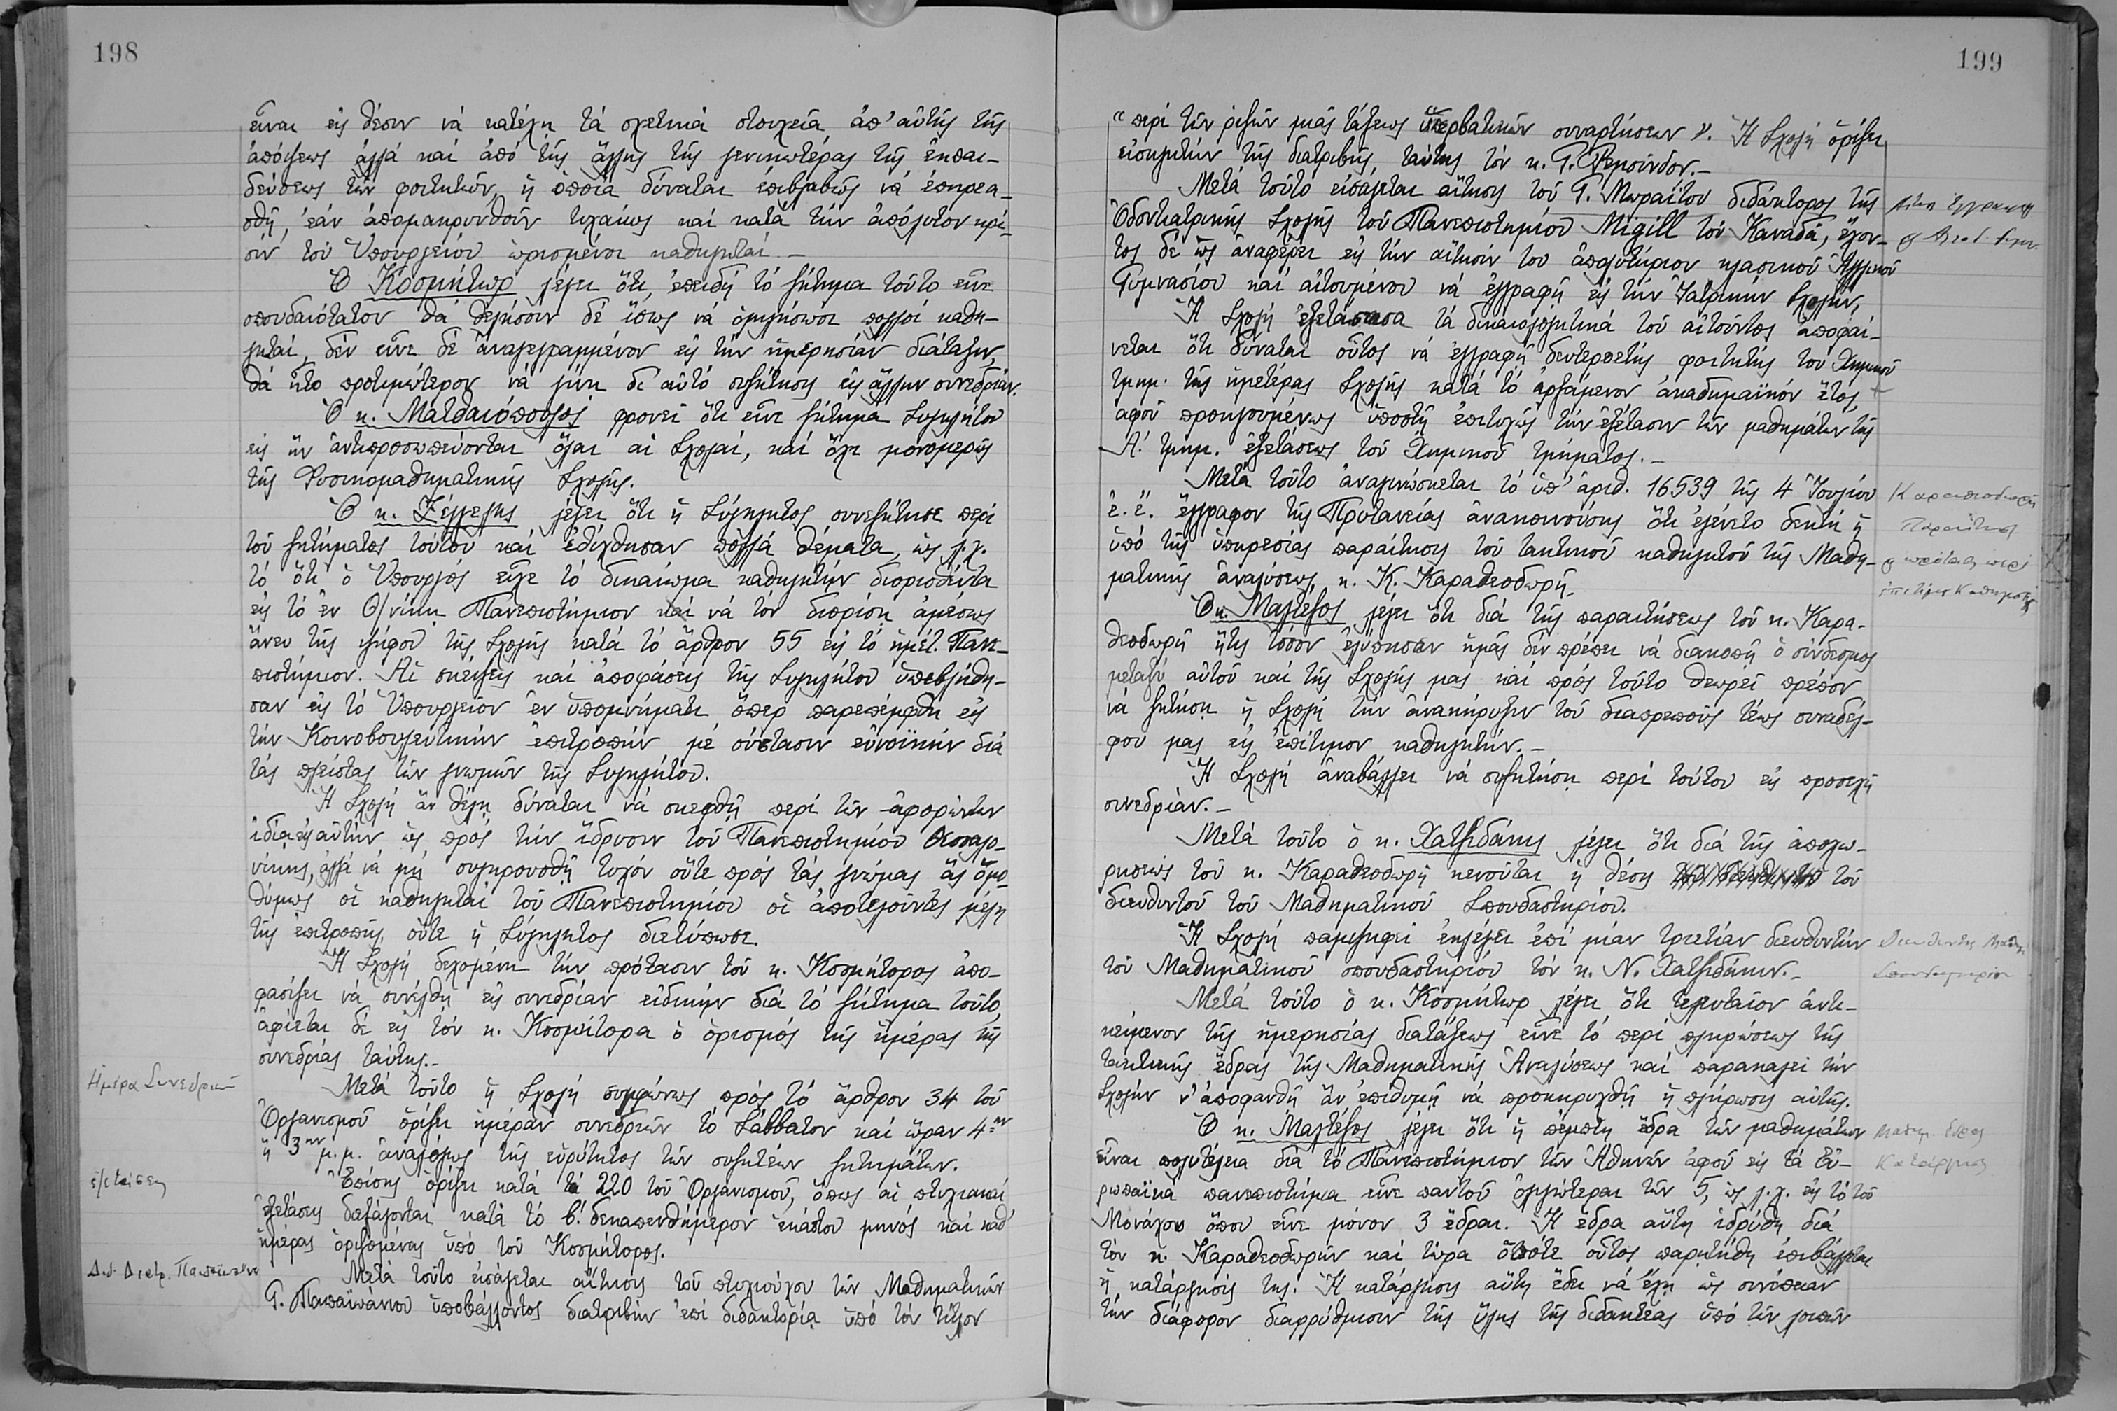 198
εἶναι εἰς θέσιν νά κατέχη τά σχετικά στοιχεῖα ἀπ' αὐτῆς τῆς
ἀπόψεως ἀλλά καί ἀπό τῆς ἄλλης τῆς γενικωτέρας τῆς ἐκπαι-
δεύσεως τῶν φοιτητῶν, ἡ ὁποία δύναται ἐπιβλαβῶς νά ἐπηρεα-
σθῇ, ἐάν ἀπομακρυνθοῦν τυχαίως καί κατά τήν ἀπόλυτον κρί-
σιν τοῦ Ὑπουργείου ὡρισμένοι καθηγηταί.-
Ὁ Κοσμήτωρ λέγει ὅτι ἐπειδή τό ζήτημα τοῦτο εἶνε
σπουδαιότατον θά θελήσουν δέ ἴσως νά ὁμιλήσωσι πολλοί καθη-
γηταί, δέν εἶνε δέ ἀναγεγραμμένον εἰς τήν ἡμερησίαν διάταξιν,
θά ἦτο προτιμώτερον νά γίνη δι' αὐτό συζήτησις εἰς ἄλλην συνεδρίαν.
Ὁ κ. Ματθαιόπουλος φρονεῖ ὅτι εἶνε ζήτημα Συγκλήτου
εἰς ἥν ἀντιπροσωπεύονται ὅλαι αἱ Σχολαί, καί ὄχι μονομερῶς
τῆς Φυσικομαθηματικῆς Σχολῆς.
Ὁ κ. Ζέγγελης λέγει ὅτι ἡ Σύγκλητος συνεζήτησε περί
τοῦ ζητήματος τούτου καί ἐθίχθησαν πολλά θέματα, ὡς π.χ.
τό ὅτι ὁ Ὑπουργός εἶχε τό δικαίωμα καθηγητήν διορισθέντα
εἰς τό ἐν Θ/νίκη Πανεπιστήμιον καί νά τόν διορίση ἀμέσως
ἄνευ τῆς ψήφου τῆς Σχολῆς κατά τό ἄρθρον 55 εἰς τό ἡμέτ. Πανε-
πιστήμιον. Αἱ σκέψεις καί ἀποφάσεις τῆς Συγκλήτου ὑπεβλήθη-
σαν εἰς τό Ὑπουργεῖον ἐν ὑπομνήματι ὅπερ παρεπέμφθη εἰς
τήν Κοινοβουλευτικήν ἐπιτροπήν μέ σύστασιν εὐνοϊκήν διά
τάς πλείστας τῶν γνωμῶν τῆς Συγκλήτου.
Ἡ Σχολή ἄν θέλη δύναται νά σκεφθῇ περί τῶν ἀφορώντων
ἰδία εἰς αὐτήν ὡς πρός τήν ἵδρυσιν τοῦ Πανεπιστημίου Θεσσαλο-
νίκης, ἀλλά νά μή συγκρουσθῇ τυχόν οὔτε πρός τάς γνώμας ἅς ὁμο-
θύμως οἱ καθηγηταί τοῦ Πανεπιστημίου οἱ ἀποτελοῦντες μέλη
τῆς ἐπιτροπῆς οὔτε ἡ Σύγκλητος διετύπωσε.
Ἡ Σχολή δεχομένη τήν πρότασιν τοῦ κ. Κοσμήτορος ἀπο-
φασίζει νά συνέλθη εἰς συνεδρίαν εἰδικήν διά τό ζήτημα τοῦτο,
ἀφίεται δέ εἰς τόν κ. Κοσμήτορα ὁ ὁρισμός τῆς ἡμέρας τῆς
συνεδρίας ταύτης.-
Ἡμέρα Συνεδριῶν
Μετά τοῦτο ἡ Σχολή συμφώνως πρός τό ἄρθρον 34 τοῦ
Ὀργανισμοῦ ὁρίζει ἡμέραν συνεδριῶν τό Σάββατον καί ὥραν 4ην
ἤ 3ην μ.μ. ἀναλόγως τῆς εὐρύτητος τῶν συζητέων ζητημάτων.
ἐξετάσεις
Ἐπίσης ὁρίζει κατά τό 220 τοῦ Ὀργανισμοῦ, ὅπως αἱ πτυχιακαί
ἐξετάσεις διεξάγονται κατά τό β' δεκαπενθήμερον ἑκάστου μηνός καί καθ'
ἡμέρας ὁριζομένας ὑπό τοῦ Κοσμήτορος.
Διδ. Διατρ. Παπαϊωάννου
Μετά τοῦτο εἰσάγεται αἴτησις τοῦ πτυχιούχου τῶν Μαθηματικῶν
Γ. Παπαϊωάννου ὑποβάλλοντος διατριβήν ἐπί διδακτορίᾳ ὑπό τόν τίτλον
199
" περί τῶν ριζῶν μιᾶς τάξεως ὑπερβατικῶν συναρτήσεων ". Ἡ Σχολή ὁρίζει
εἰσηγητήν τῆς διατριβῆς ταύτης τόν κ. Γ. Ρεμοῦνδον.-
Μετά τοῦτο εἰσάγεται αἴτησις τοῦ Γ. Μωραΐτου διδάκτορος τῆς
Ὀδοντιατρικῆς Σχολῆς τοῦ Πανεπιστημίου Migill τοῦ Καναδᾶ, ἔχον-
τος δέ ὡς ἀναφέρει εἰς τήν αἴτησίν του ἀπολυτήριον κλασικοῦ Ἀγγλικοῦ
Γυμνασίου καί αἰτουμένου νά ἐγγραφῇ εἰς τήν Ἰατρικήν Σχολήν,
Ἡ Σχολή ἐξετάσασα τά δικαιολογητικά τοῦ αἰτοῦντος ἀποφαί-
νεται ὅτι δύναται οὗτος νά ἐγγραφῇ δευτεροετής φοιτητής τοῦ Χημικοῦ
τμημ. τῆς ἡμετέρας Σχολῆς κατά τό ἀρξάμενον ἀκαδημαϊκόν ἔτος,
ἀφοῦ προηγουμένως ὑποστῇ ἐπιτυχῶς τήν ἐξέτασιν τῶν μαθημάτων τῆς
Α' τμημ. ἐξετάσεως τοῦ Χημικοῦ τμήματος.-
Μετά τοῦτο ἀναγινώσκεται τό ὑπ' ἀριθ. 16539 τῆς 4 Ἰουλίου
ἐ.ἔ. ἔγγραφον τῆς Πρυτανείας ἀνακοινούσης ὅτι ἐγένετο δεκτή ἡ
ὑπό τῆς ὑπηρεσίας παραίτησις τοῦ τακτικοῦ καθηγητοῦ τῆς Μαθη-
ματικῆς ἀναλύσεως κ. Κ. Καραθεοδωρῆ.
Καραθεοδωρῆ
Παραίτησις
πρότασις περί
ἐπιτίμου Καθηγητοῦ
Ὁ κ. Μαλτέζος λέγει ὅτι διά τῆς παραιτήσεως τοῦ κ. Καρα-
θεοδωρῆ ἥτις τόσον ἐλύπησεν ἡμᾶς δέν πρέπει νά διακοπῇ ὁ σύνδεσμος
μεταξύ αὐτοῦ καί τῆς Σχολῆς μας καί πρός τοῦτο θεωρεῖ πρέπον
νά ζητήση ἡ Σχολή τήν ἀνακήρυξιν τοῦ διαπρεποῦς τέως συναδέλ-
φου μας εἰς ἐπίτιμον καθηγητήν.-
Ἡ Σχολή ἀναβάλλει νά συζητήση περί τούτου εἰς προσεχῆ
συνεδρίαν.-
Μετά τοῦτο ὁ κ. Χατζιδάκις λέγει ὅτι διά τῆς ἀποχω-
ρήσεως τοῦ κ. Καραθεοδωρῆ κενοῦται ἡ θέσις τοῦ
διευθυντοῦ τοῦ Μαθηματικοῦ Σπουδαστηρίου.
Ἡ Σχολή παμψηφεί ἐκλέγει ἐπί μίαν τριετίαν διευθυντήν
τοῦ Μαθηματικοῦ σπουδαστηρίου τόν κ. Ν. Χατζιδάκιν.-
Διευθυντής Μαθημ.
Σπουδαστηρίου
Μετά τοῦτο ὁ κ. Κοσμήτωρ λέγει ὅτι τελευταῖον ἀντι-
κείμενον τῆς ἡμερησίας διατάξεως εἶνε τό περί πληρώσεως τῆς
τακτικῆς ἕδρας τῆς Μαθηματικῆς Ἀναλύσεως καί παρακαλεῖ τήν
Σχολήν ν' ἀποφανθῇ ἄν ἐπιθυμῇ νά προκηρυχθῇ ἡ πλήρωσις αὐτῆς.
Ὁ κ. Μαλτέζος λέγει ὅτι ἡ πέμπτη ἕδρα τῶν μαθημάτων
εἶναι πολυτέλεια διά τό Πανεπιστήμιον τῶν Ἀθηνῶν ἀφοῦ εἰς τά Εὐ-
ρωπαϊκά πανεπιστήμια εἶνε παντοῦ ὀλιγώτεραι τῶν 5, ὡς π.χ. εἰς τό τοῦ
Μονάχου ὅπου εἶνε μόνον 3 ἕδραι. Ἡ ἕδρα αὕτη ἱδρύθη διά
τόν κ. Καραθεοδωρῆν καί τώρα ὁπότε οὗτος παρῃτήθη ἐπιβάλλεται
ἡ κατάργησίς της. Ἡ κατάργησις αὕτη ἔδει νά ἔχη ὡς συνέπειαν
τήν διάφορον διαρρύθμισιν τῆς ὕλης τῆς διδακτέας ὑπό τῶν λοιπῶν
Μαθημ. Ἕδρας
Κατάργησις